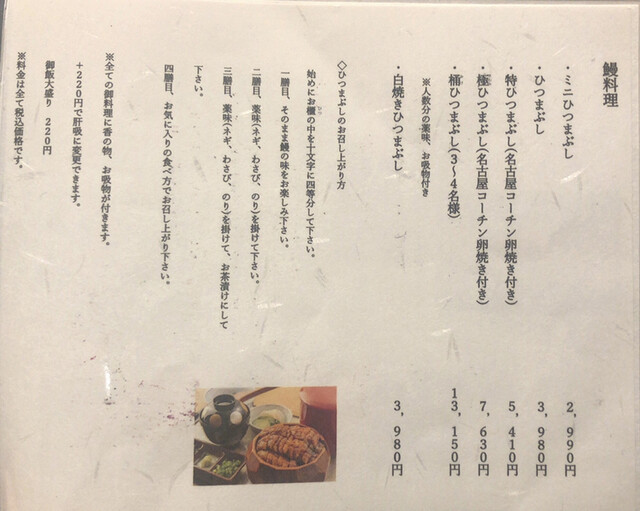 鰻料理
・ミニひつまぶし 2,990円
・ひつまぶし 3,980円
・特ひつまぶし(名古屋コーチン卵焼き付き) 5,410円
・極ひつまぶし(名古屋コーチン卵焼き付き) 7,630円
・桶ひつまぶし(3~4名様) 13,150円
※人数分の薬味、お吸物付き
・白焼きひつまぶし 3,980円
◇ひつまぶしのお召し上がり方
始めにお櫃の中を十文字に四等分して下さい。
一膳目、そのまま鰻の味をお楽しみ下さい。
二膳目、薬味(ネギ、わさび、のり)を掛けて下さい。
三膳目、薬味(ネギ、わさび、のり)を掛けて、お茶漬けにして
下さい。
四膳目、お気に入りの食べ方でお召し上がり下さい。
※全ての御料理に香の物、お吸物が付きます。
+220円で肝吸に変更できます。
御飯大盛り 220円
※料金は全て税込価格です。